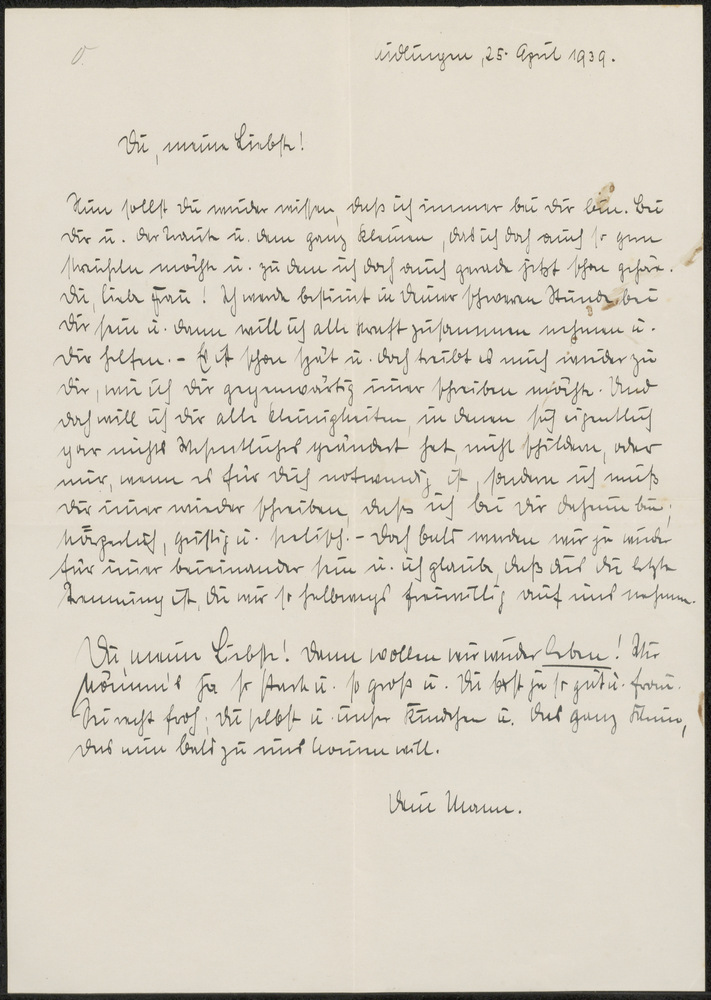 25. April 1939.
Du, meine Liebste!
Nun sollst Du wieder wissen, daß ich immer bei Dir bin. Bei
Dir u. der u. dem ganz Kleinen, das ich doch auch so gern
streicheln möchte u. zu dem ich doch auch gerade jetzt schon gehöre.
Du, liebe Frau! Ich werde bestimmt in Deiner schweren Stunde bei
Dir sein u. dann will ich alle Kraft zusammen nehmen u.
Dir helfen. – Es ist schon spät u. doch treibt es mich wieder zu
Dir, wie ich Dir gegenwärtig immer schreiben möchte. Und
doch will ich Dir alle Kleinigkeiten, in denen sich eigentlich
gar nichts Wesentliches geändert hat, nicht schildern, oder
nur, wenn es für Dich notwendig ist, sondern ich muß
Dir immer wieder schreiben, daß ich bei Dir daheim bin;
körperlich, geistig u. seelisch. – Doch bald werden wir ja wieder
für immer beieinander sein u. ich glaube, daß dies die letzte
Trennung ist, die wir so halbwegs freiwillig auf uns nehmen.
Du, meine Liebste! Dann wollen wir wieder leben! Wir
können's ja so stark u. so groß u. Du bist ja so gut u. fein.
Sei recht froh; Du selbst u. unser Kindchen u. das ganz Kleine,
das nun bald zu uns kommen will.
Dein Mann.